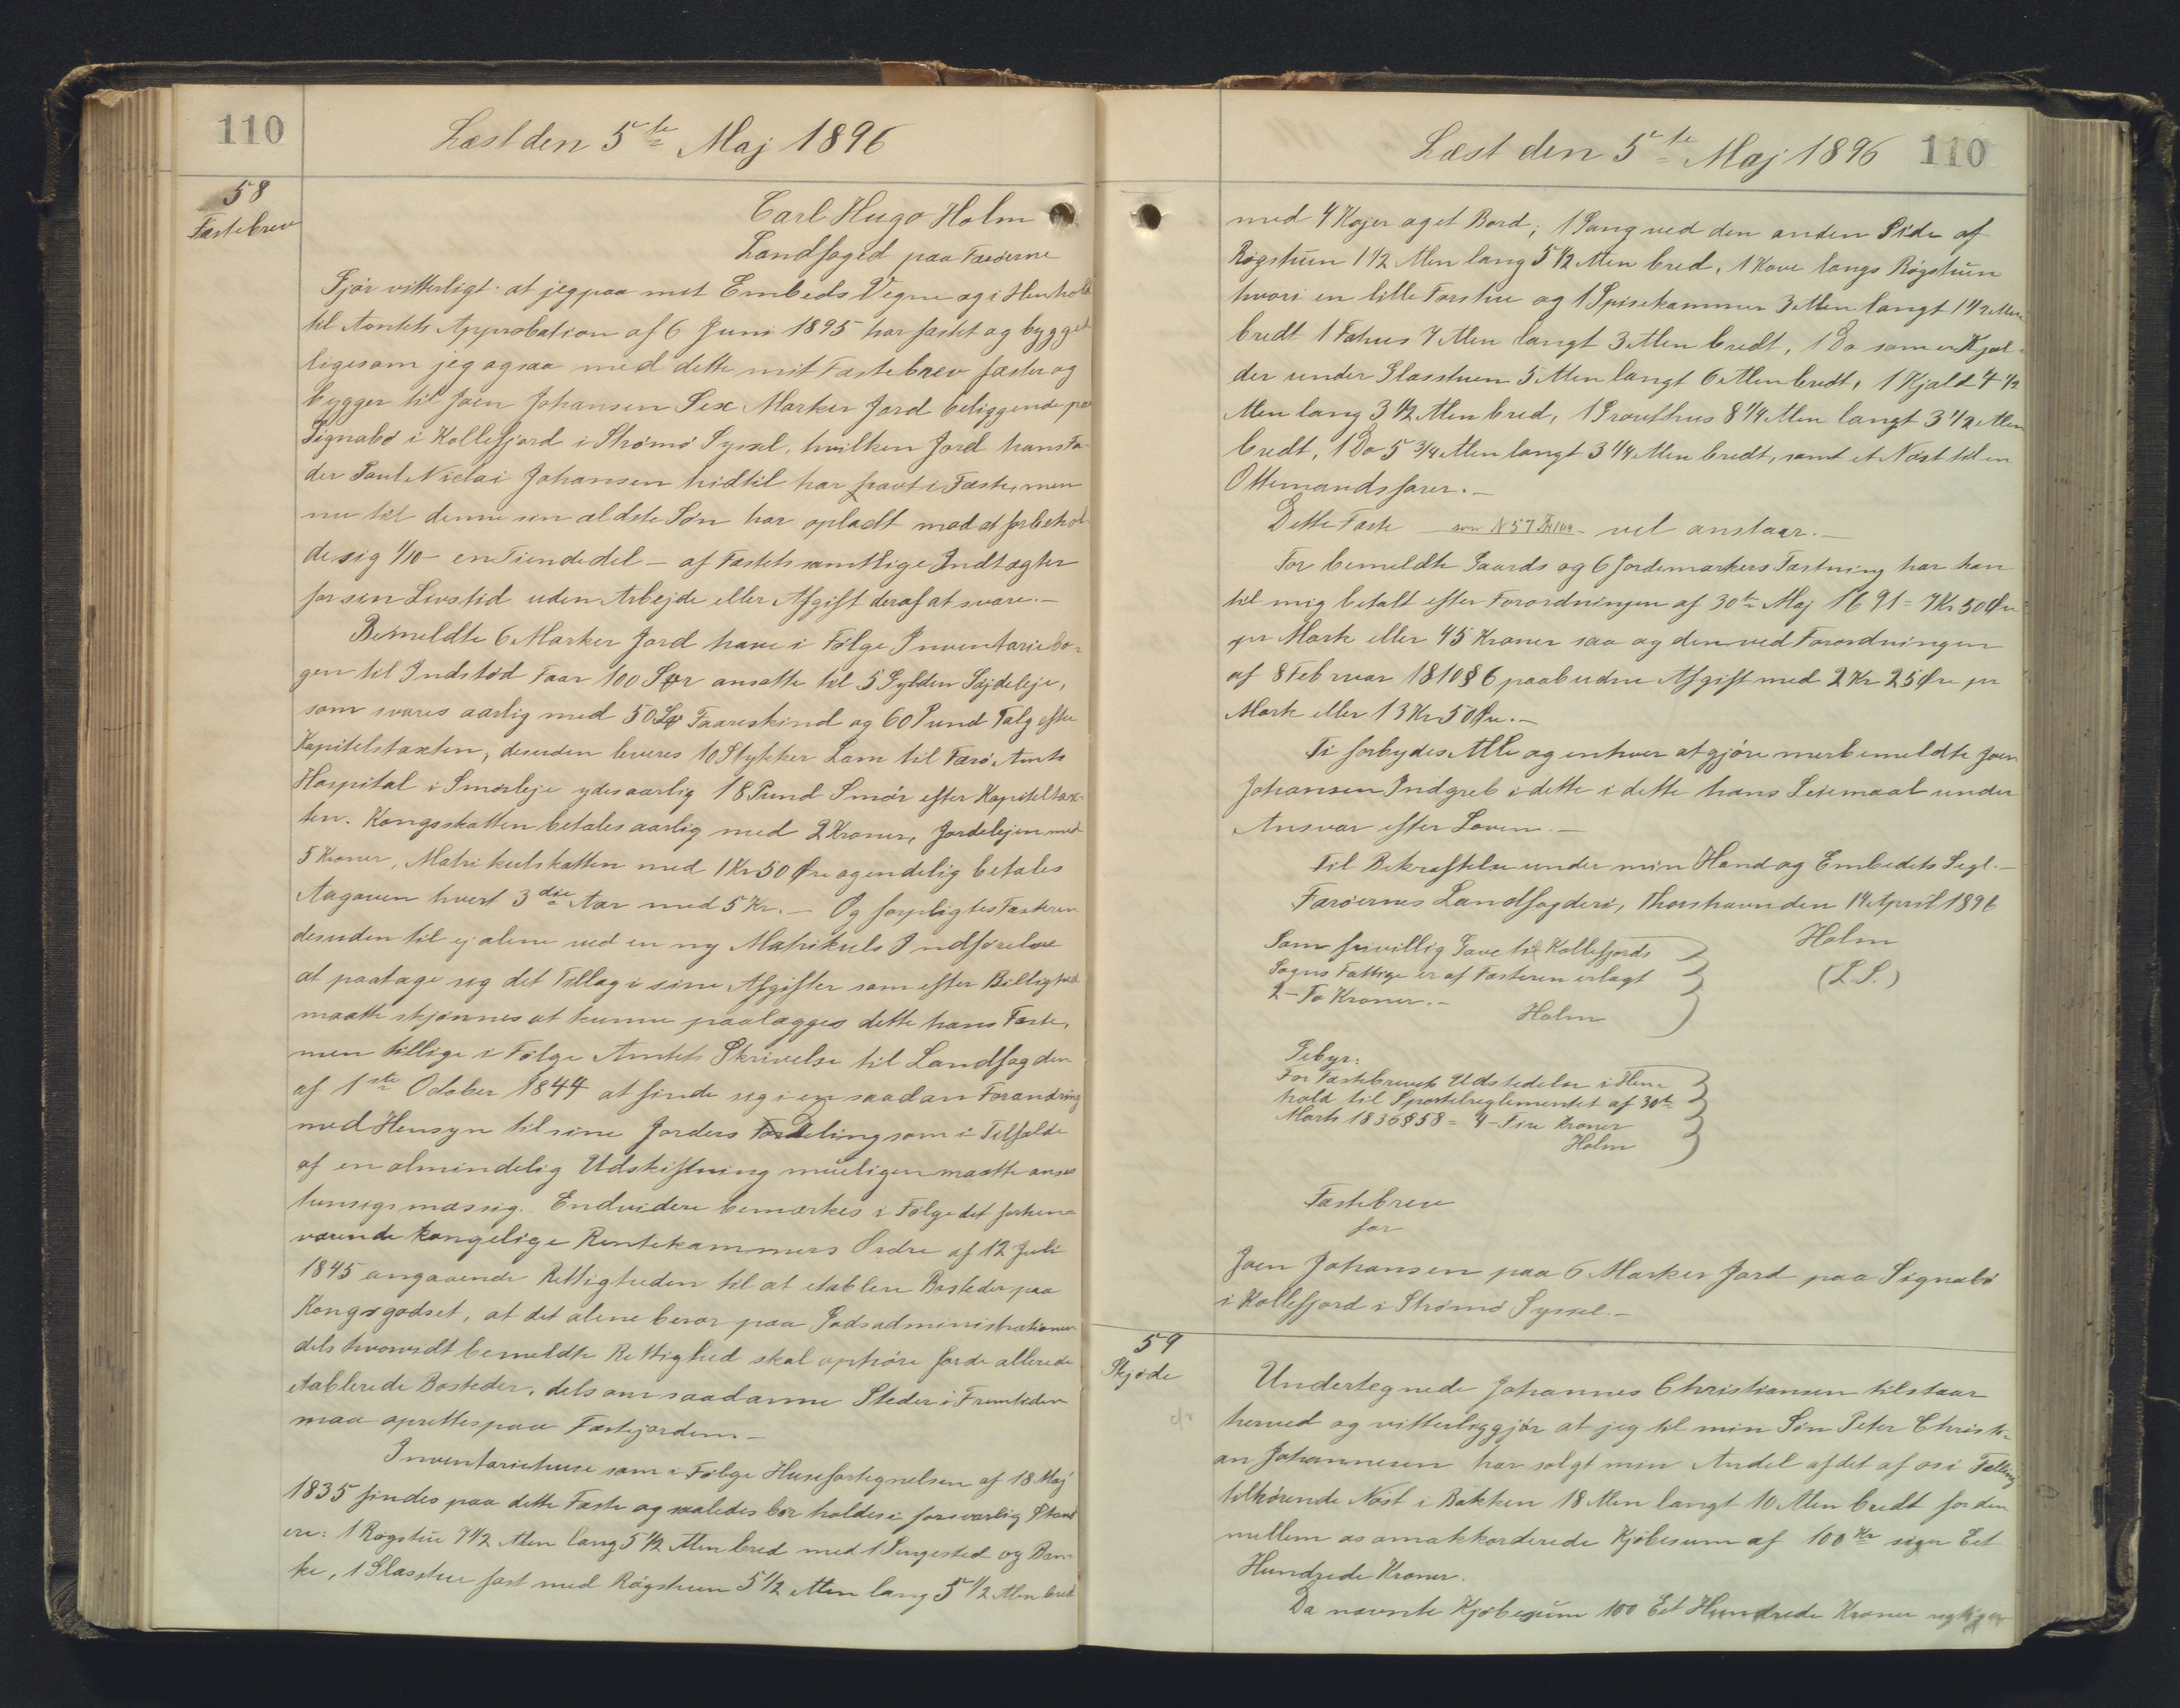 110
Læst den 5te Maj 1896
58
Fæstebrev
Carl Hugo Holm
Landfoged paa Færøerne
Gjør vitterligt: at jeg paa mit Embeds Vegne og i Henhold
til Amtets Approbation af 6 Juni 1895 har fæstet og bygget
ligesom jeg ogsaa med dette mit Fæstebrev fæster og
bygger til Joen Johansen Sex Marker Jord beliggende paa
Signabø i Kollefjord i Strømø Syssel, hvilken Jord hans Fa-
der Poul Niclai Johansen hidtil har havt i Fæste, men
nu til denne sin ældste Søn har opladt mod at forbehol-
de sig 1/10 - en Tiendedel - af Fæstets samtlige Indtægter
for sin Livstid uden Arbejde eller Afgift deraf at svare.-
Bemeldte 6 Marker Jord have i Følge Inventariebo-
gen til Indstød Faar 100 Stkr ansatte til 5 Gylden Søjdeleje,
som svares aarlig med 50 Faareskind og 60 Pund Talg efter
Kapitelstaxten, desuden leveres 10 Stykker Lam til Færø Amts
Hospital i Smørleje ydes aarlig 18 Pund Smør efter Kapiteltax-
ten. Kongsskatten betales aarlig med 2 Kroner, Jordelejen med
5 Kroner, Matrikulskatten med 1 Kr 50 Øre og endelig betales
Aagaven hvert 3die Aar med 5 Kr. - Og forpligtes Fæsteren
desuden til ej alene ved en ny Matrikuls Indførelse
at paatage sig det Tillæg i sine Afgifter som efter Billighed
maatte skjønnes at kunne paalægges dette hans Fæste,
men tillige i Følge Amtets Skrivelse til Landfogden
af 1ste October 1844 at finde sig i en saadan Forandring
med Hensyn til sine Jorders Fordeling som i Tilfælde
af en almindelig Udskiftning mueligen maatte anses
hensigtsmæssig. Endvidere bemærkes i Følge det forhen
værende kongelige Rentekammers Ordre af 12 Juli
1845 angaaende Rettigheden til at etablere Bosteder paa
Kongsgodset, at det alene beror paa Godsadministrationen
dels hvorvidt bemeldte Rettighed skal ophøre for de allerede
etablerede Bosteder, dels om saadanne Steder i Fremtiden
maa oprettes paa Fæstejorden.-
Inventariehuse som i Følge Husefortegnelsen af 18 Maj
1835 findes paa dette Fæste og saaledes bør holdes i forsvarlig Stand
ere: 1 Røgstue 7 1/2 Alen lang 5 1/2 Alen bred med 1 Sengested og Bæn-
ke, 1 Glasstue fast med Røgstuen 5 1/2 Alen lang 5 1/2 Alen bred
Læst den 5te Maj 1896
110
med 4 Køjer og et Bord; 1 Gang ved den anden Side af
Røgstuen 1 1/2 Alen lang 5 1/2 Alen bred, 1 Kove langs Røgstuen
hvori en lille Forstue og 1 Spisekammer 3 Alen langt 1 1/2 Alen
bredt 1 Fæhus 7 Alen langt 3 Alen bredt, 1 Do som er Kjæl-
der under Glasstuen 5 Alen langt 6 Alen bredt, 1 Kjald 4 1/2
Alen lang 3 1/2 Alen bred, 1 Grouthus 8 1/4 Alen langt 3 1/2 Alen
bredt, 1 Do 5 3/4 Alen langt 3 1/4 Alen bredt, samt et Nøst til en
Ottemandsfarer.-
Dette Fæste - som N 57 Fol 109 - vel anstaar.-
For bemeldte Gaards og 6 Jordemarkers Fæstning har han
til mig betalt efter Forordningen af 30te Maj 1691 = 7 Kr 50 Øre
pr Mark eller 45 Kroner saa og den ved Forordningen
af 8 Februar 1810 § 6 paabudne Afgift med 2 Kr 25 Øre pr
Mark eller 13 Kr 50 Øre.-
Ti forbydes Alle og enhver at gjøre merbemeldte Joen
Johansen Indgreb i dette i dette hans Leiemaal under
Ansvar efter Loven.-
Til Bekræftelse under min Haand og Embedets Segl.-
Færøernes Landfogderi, Thorshavn den 14 April 1896
Holm
(L.S.)
Som frivillig Gave til Kollefjords
Sogns Fattige er af Fæsteren erlagt
2 - To Kroner.-
Holm
Gebyr:
For Fæstebrevets Udstedelse i Hen-
hold til Sportelreglementet af 30te
Marts 1836 § 58 = 4 - Fire Kroner
Holm
Fæstebrev
for
Joen Johansen paa 6 Marker Jord paa Signabø
i Kollefjord i Strømø Syssel.-
59
Skjøde
Undertegnede Johannes Christiansen tilstaar
herved og vitterliggjør at jeg til min Søn Peter Christi-
an Johannesen har solgt min Andel af det af os i Fælling
tilhørende Nøst i Bakken 18 Alen langt 10 Alen bredt for den
mellem os omakkorderede Kjøbesum af 100 Kr siger Eet
Hundrede Kroner.
Da nævnte Kjøbesum 100 Eet Hundrede Kroner rigtig er